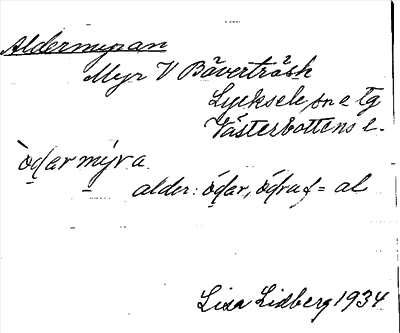 Aldermyran
Myr V Bäverträsk
Lycksele sn o tg
Västerbottens l.
òḍarmýra
alder: óḍar, óḍra f = al
Lisa Lidberg 1934